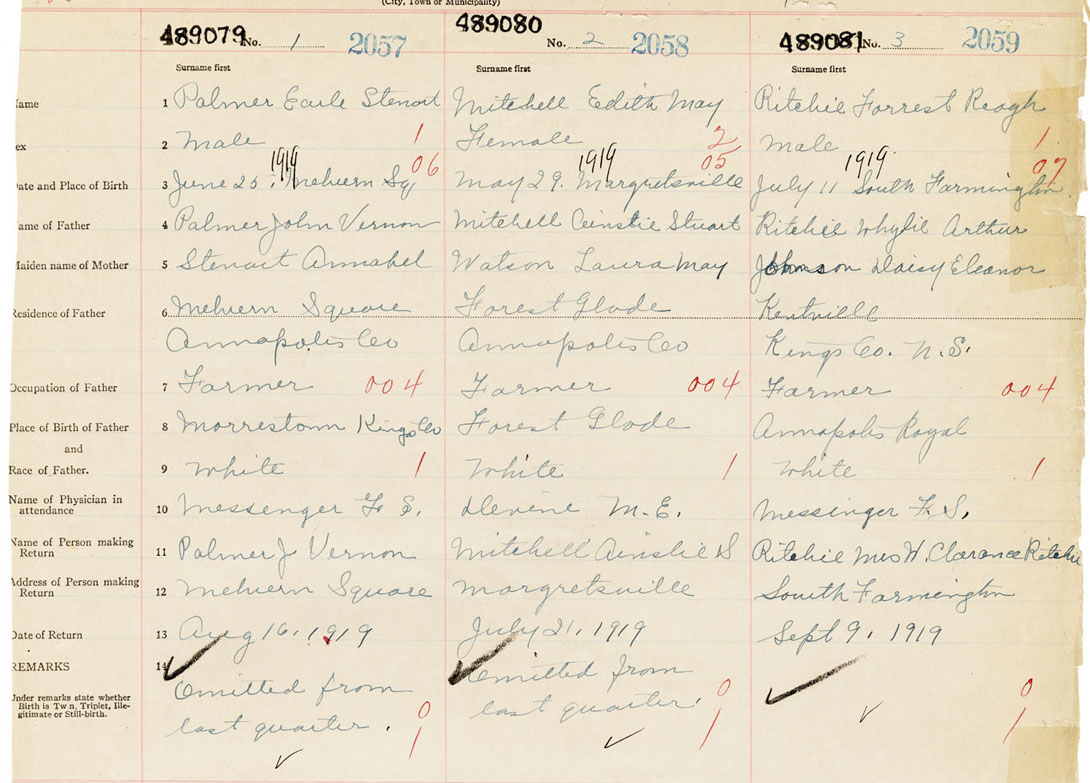 (City, Town or Municipality)
489079 No. 1 2057 489080 No. 2 2058 489081 No. 3 2059
Surname first Surname first Surname first
ame 1 Palmer Earle Stewart Mitchell Edith May Ritchie Forrest Reagh
ex 2 Male 1 Female 2 Male 1
1919 06 1919 05 1919 07
ate and Place of Birth 3 June 25. Melvern Sq May 29. Margretsville July 11 South Farmington
ame of Father 4 Palmer John Vernon Mitchell Ainslie Stuart Ritchie Whylie Arthur
Maiden name of Mother 5 Stewart Annabel Watson Laura May Johnson Daisy Eleanor
Residence of Father 6 Melvern Square Forest Glade Kentville
Annapolis Co Annapolis Co Kings Co. N.S.
Occupation of Father 7 Farmer 004 Farmer 004 Farmer 004
Place of Birth of Father 8 Morrestown Kings Co Forest Glade Annapolis Royal
and
Race of Father. 9 White 1 White 1 White 1
Name of Physician in
attendance 10 Messenger F S. Devine M.E. Messinger F. S.
Name of Person making
Return 11 Palmer J Vernon Mitchell Ainslie S Ritchie Mrs W. Clarance Ritchie
Address of Person making
Return 12 Melvern Square Margretsville South Farmington
Date of Return 13 Aug 16. 1919 July 21, 1919 Sept 9. 1919
REMARKS 14 Omitted from Omitted from
Under remarks state whether
Birth is Tw n, Triplet, Ille-
gitimate or Still-birth.
last quarter. 0 last quarter. 0 0
1 1 1